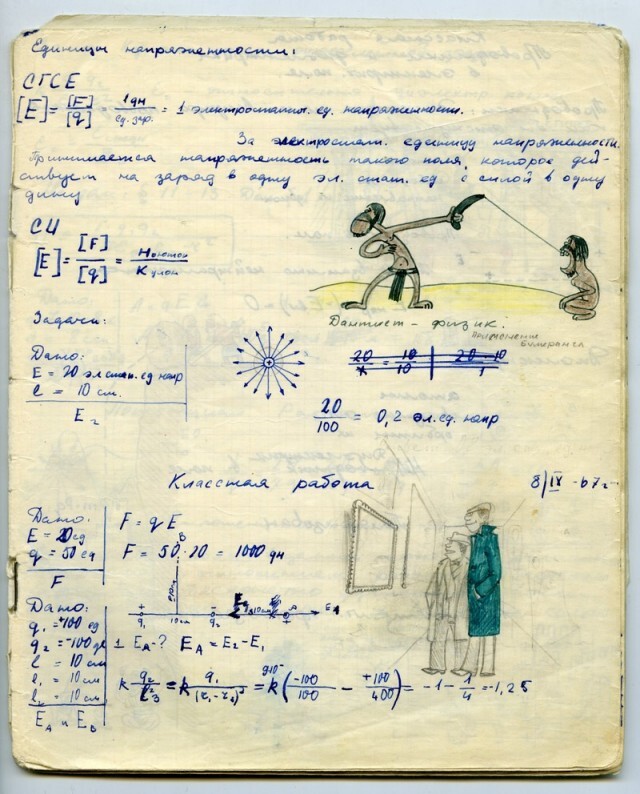 Единицы напряженности:
СГСЕ
[E] = [F]/[q] = 1 дн/ед. зар. = 1 электростат. ед. напряженности.
За электростат. единицу напряженности
принимается напряженность такого поля, которое дей-
ствует на заряд в одну эл. стат. ед с силой в одну
дину
СИ
[E] = [F]/[q] = Ньютон/Кулон
Дантист - физик.
применение
бумеранга
Задачи:
Дано:
E = 20 эл стат. ед напр
l = 10 см.
E₂
20/100 = 0,2 эл. ед. напр
Классная работа
8/IX-67г
Дано:
E = 20 ед
q = 50 ед
F
F = qE
F = 50·20 = 1000 дн
Дано:
q₁ = +100 ед
q₂ = -100 ед
l = 10 см
l₁ = 10 см
l₂ = 10 см
E_A и E_B
B
10см
+ q₁ 10см - q₂ 10см A E_A
1 E_A-? E_A = E₂ - E₁
= -1 - 1/4 = -1,25